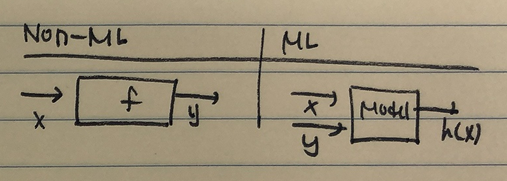 Non-ML ML
f
x y
x
y
Model
h(x)